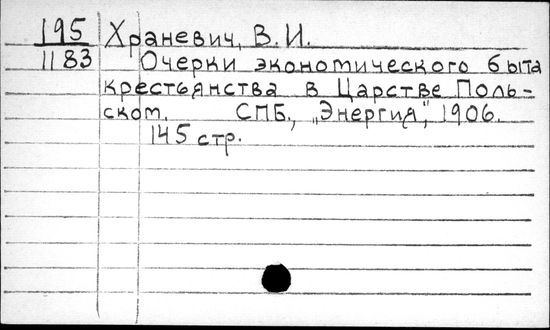 195 Храневич, В. И.
1183 Очерки экономического быта
крестьянства в Царстве Поль-
ском. СПБ., „Энергия", 1906.
145 стр.